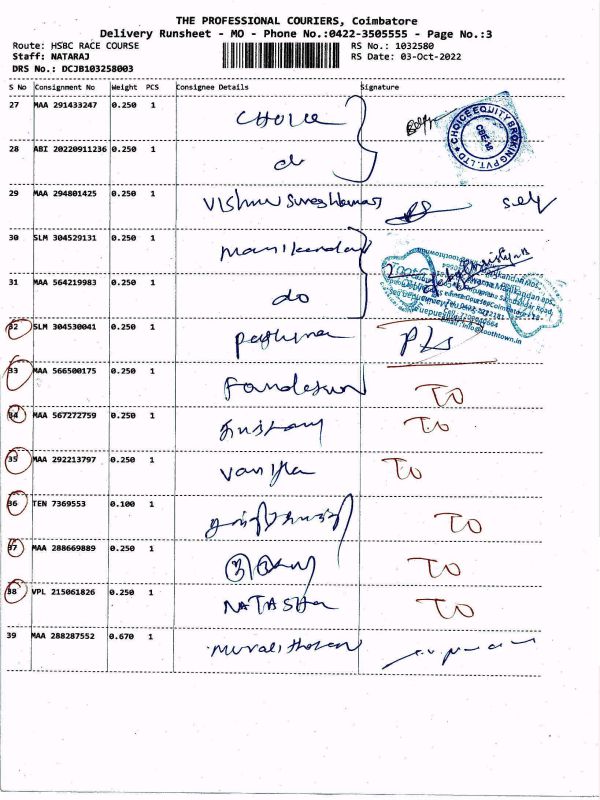 THE PROFESSIONAL COURIERS, Coimbatore
Delivery Runsheet - MO - Phone No.:0422-3505555 - Page No.:3
Route: HSBC RACE COURSE RS No.: 1032580
Staff: NATARAJ RS Date: 03-Oct-2022
DRS No.: DCJB103258003
S No Consignment No Weight PCS Consignee Details Signature
27 MAA 291433247 0.250 1 CHOICE
CHOICE EQUITY BROKING PVT. LTD
28 ABI 20220911236 0.250 1 do
29 MAA 294801425 0.250 1 Vishnu Sureshkumar self
30 SLM 304529131 0.250 1 Manikandan
31 MAA 564219983 0.250 1 do
32 SLM 304530041 0.250 1
33 MAA 566500175 0.250 1 TO
34 MAA 567272759 0.250 1 TO
35 MAA 292213797 0.250 1 TO
36 TEN 7369553 0.100 1 TO
37 MAA 288669889 0.250 1 TO
38 VPL 215061826 0.250 1 NATASHA TO
39 MAA 288287552 0.670 1 Muralitharan